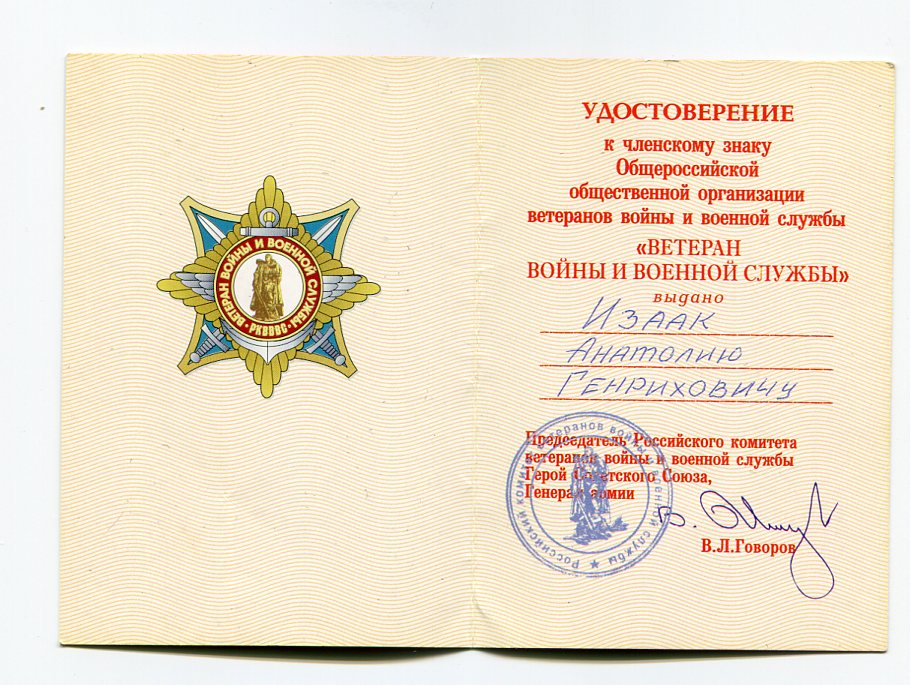 ВЕТЕРАН ВОЙНЫ И ВОЕННОЙ СЛУЖБЫ
• РКВВВС •
УДОСТОВЕРЕНИЕ
к членскому знаку
Общероссийской
общественной организации
ветеранов войны и военной службы
«ВЕТЕРАН
ВОЙНЫ И ВОЕННОЙ СЛУЖБЫ»
выдано
Изаак
Анатолию
Генриховичу
Председатель Российского комитета
ветеранов войны и военной службы
Герой Советского Союза,
Генерал армии
Российский комитет ветеранов войны и военной службы
В.Л.Говоров